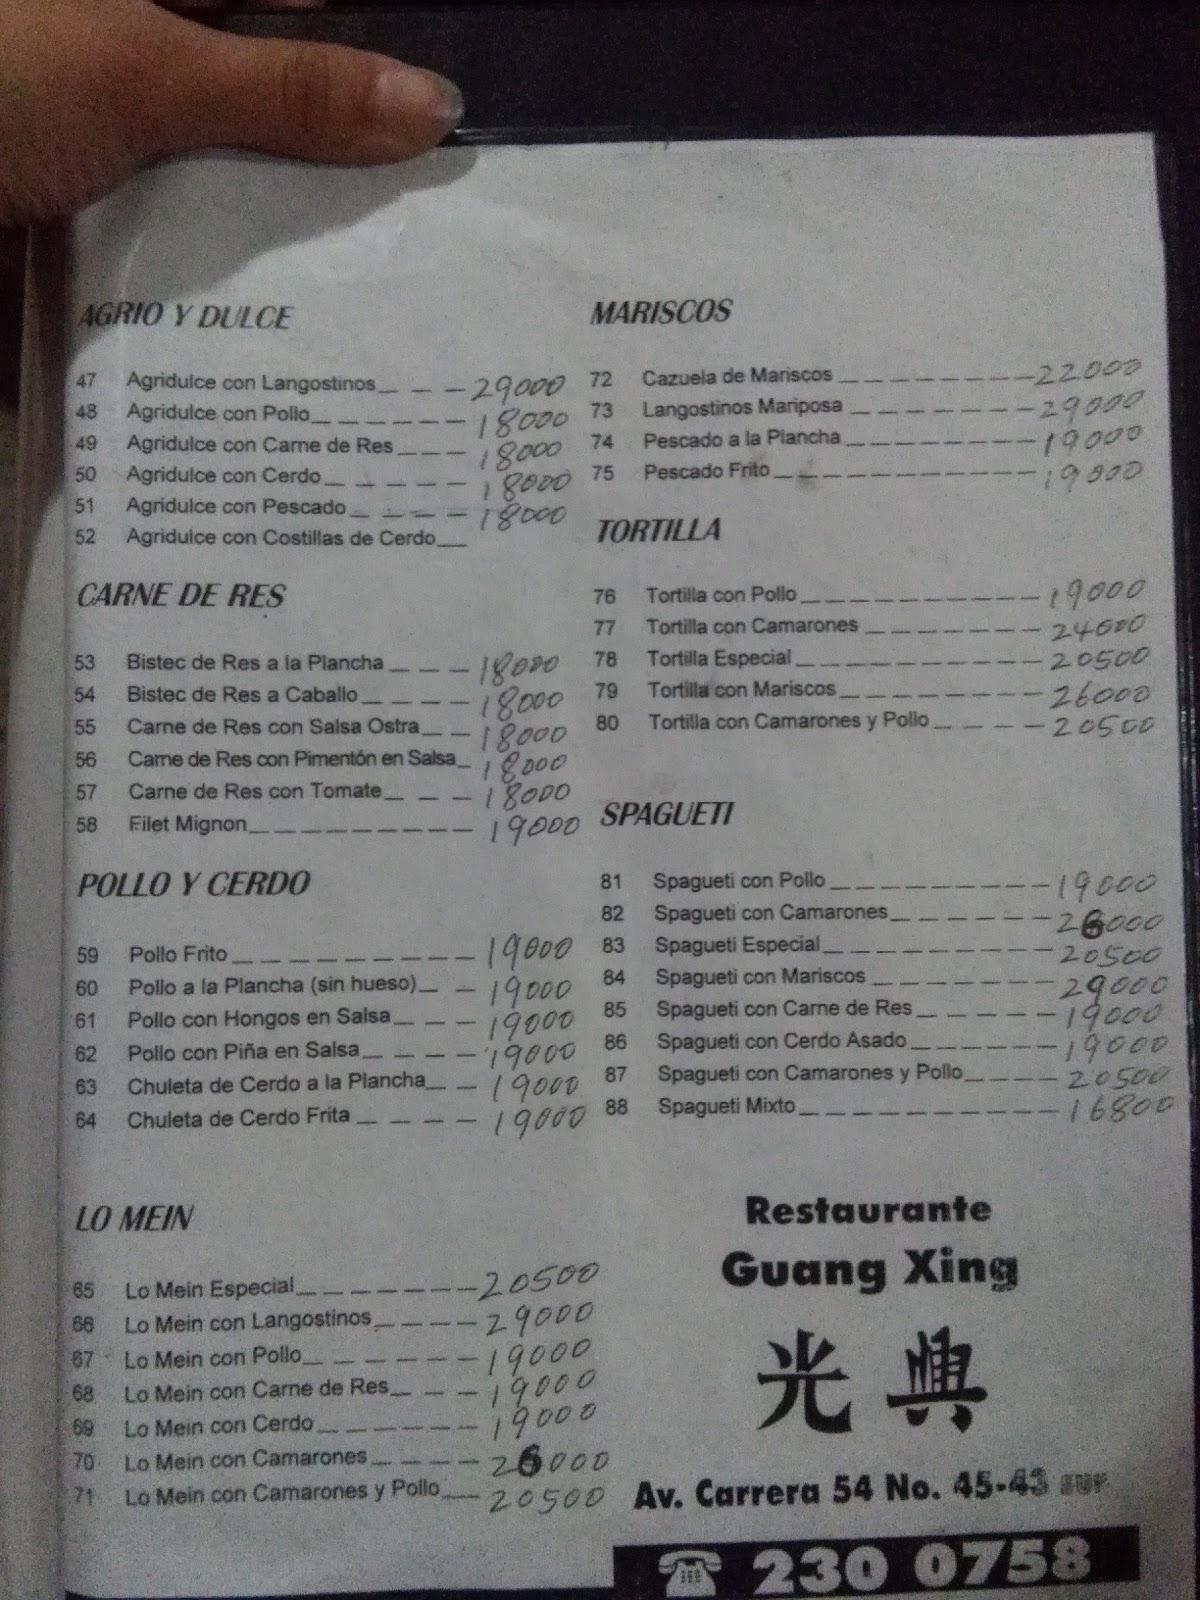 AGRIO Y DULCE
47 Agridulce con Langostinos 29000
48 Agridulce con Pollo 18000
49 Agridulce con Carne de Res 18000
50 Agridulce con Cerdo 18000
51 Agridulce con Pescado 18000
52 Agridulce con Costillas de Cerdo
CARNE DE RES
53 Bistec de Res a la Plancha 18000
54 Bistec de Res a Caballo 18000
55 Carne de Res con Salsa Ostra 18000
56 Carne de Res con Pimentón en Salsa 18000
57 Carne de Res con Tomate 18000
58 Filet Mignon 19000
POLLO Y CERDO
59 Pollo Frito 19000
60 Pollo a la Plancha (sin hueso) 19000
61 Pollo con Hongos en Salsa 19000
62 Pollo con Piña en Salsa 19000
63 Chuleta de Cerdo a la Plancha 19000
64 Chuleta de Cerdo Frita 19000
LO MEIN
65 Lo Mein Especial 20500
66 Lo Mein con Langostinos 29000
67 Lo Mein con Pollo 19000
68 Lo Mein con Carne de Res 19000
69 Lo Mein con Cerdo 19000
70 Lo Mein con Camarones 26000
71 Lo Mein con Camarones y Pollo 20500
MARISCOS
72 Cazuela de Mariscos 22000
73 Langostinos Mariposa 29000
74 Pescado a la Plancha 19000
75 Pescado Frito 19000
TORTILLA
76 Tortilla con Pollo 19000
77 Tortilla con Camarones 24000
78 Tortilla Especial 20500
79 Tortilla con Mariscos 26000
80 Tortilla con Camarones y Pollo 20500
SPAGUETI
81 Spagueti con Pollo 19000
82 Spagueti con Camarones 26000
83 Spagueti Especial 20500
84 Spagueti con Mariscos 29000
85 Spagueti con Carne de Res 19000
86 Spagueti con Cerdo Asado 19000
87 Spagueti con Camarones y Pollo 20500
88 Spagueti Mixto 16800
Restaurante
Guang Xing
光興
Av. Carrera 54 No. 45-43 sur
230 0758